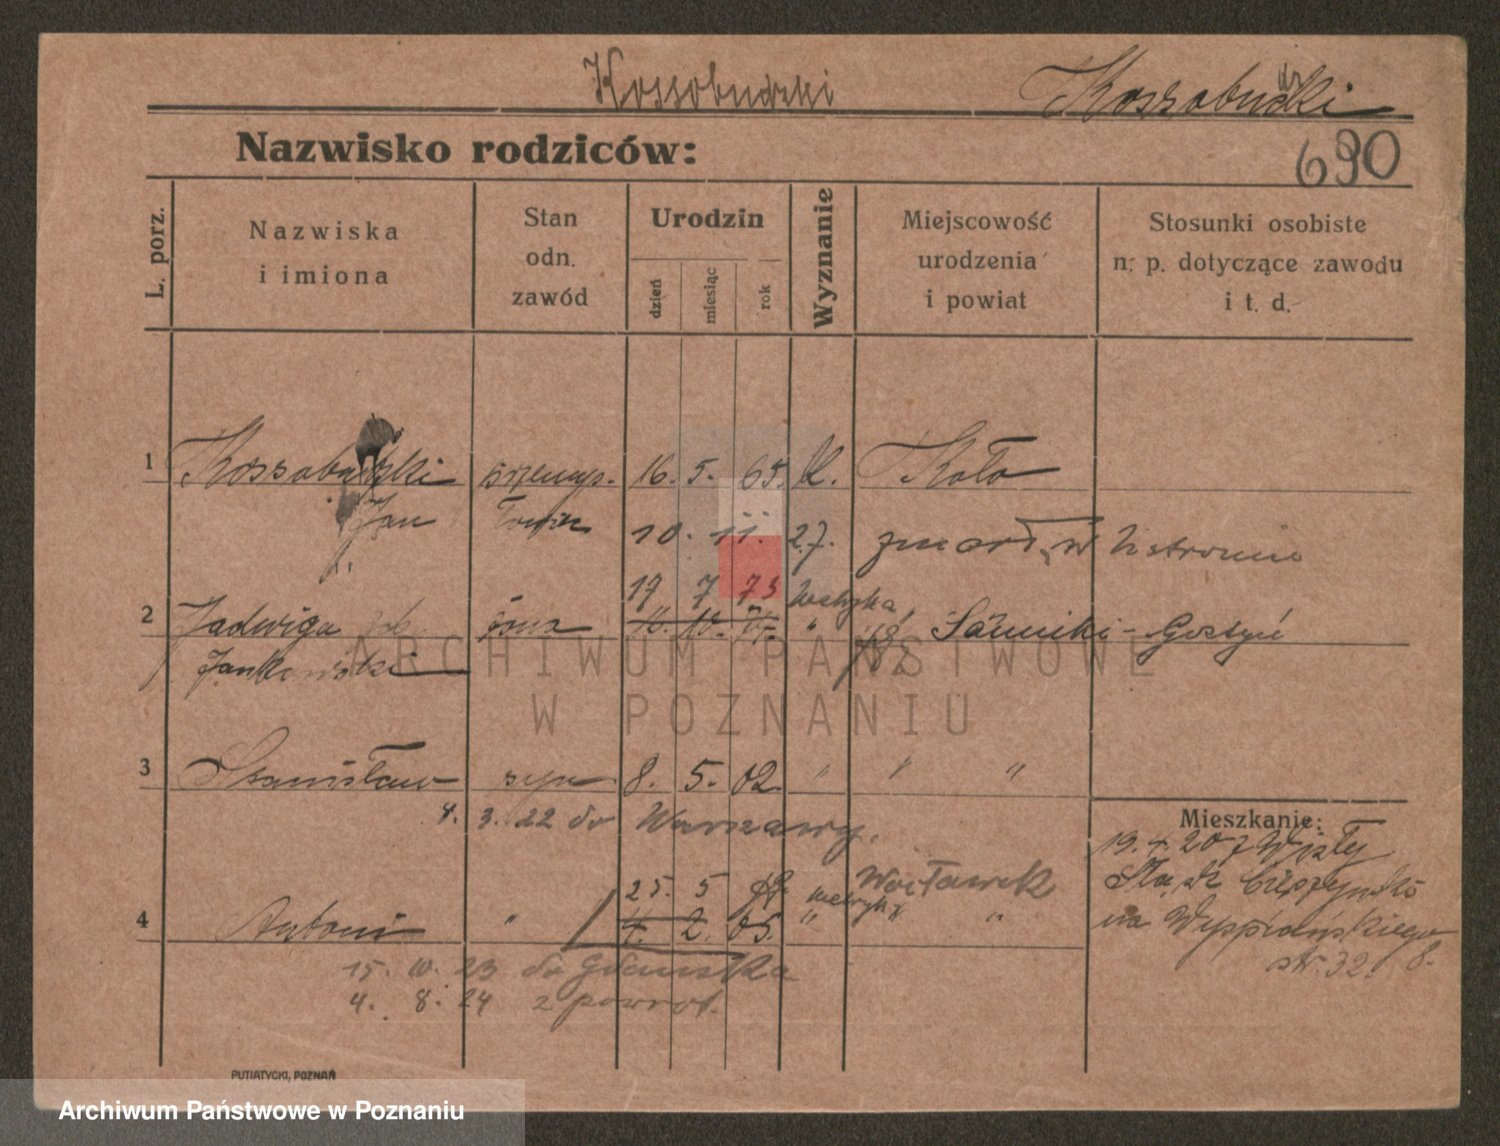 Kossobudzki Kossobudzki
690
Nazwisko rodziców:
L. porz.
Nazwiska i imiona
Stan odn. zawód
Urodzin
dzień miesiąc rok
Wyznanie
Miejscowość urodzenia i powiat
Stosunki osobiste n. p. dotyczące zawodu i t. d.
1 Kossobudzki przemys- 16. 5. 65. k. Koło
Jan łowiec
10. 11. 27. zmarł w Ustroniu
19 7 73
2 Jadwiga żona 16. 10. " Sanniki - Gostyń
Jankowska
3 Stanisław syn 8. 5. 02. " " "
4. 3. 22 do Warszawy.
25. 5 Wocławek
4 Antoni " 4. 2. 05. " "
15. 10. 23 do Gdańska
4. 8. 24 z powrot.
Mieszkanie:
19. 4. 20 z Wisły
Śląsk Cieszyński
na Wyspiańskiego 8.
str 32.
PUTIATYCKI, POZNAŃ
ARCHIWUM PAŃSTWOWE
W POZNANIU
Archiwum Państwowe w Poznaniu